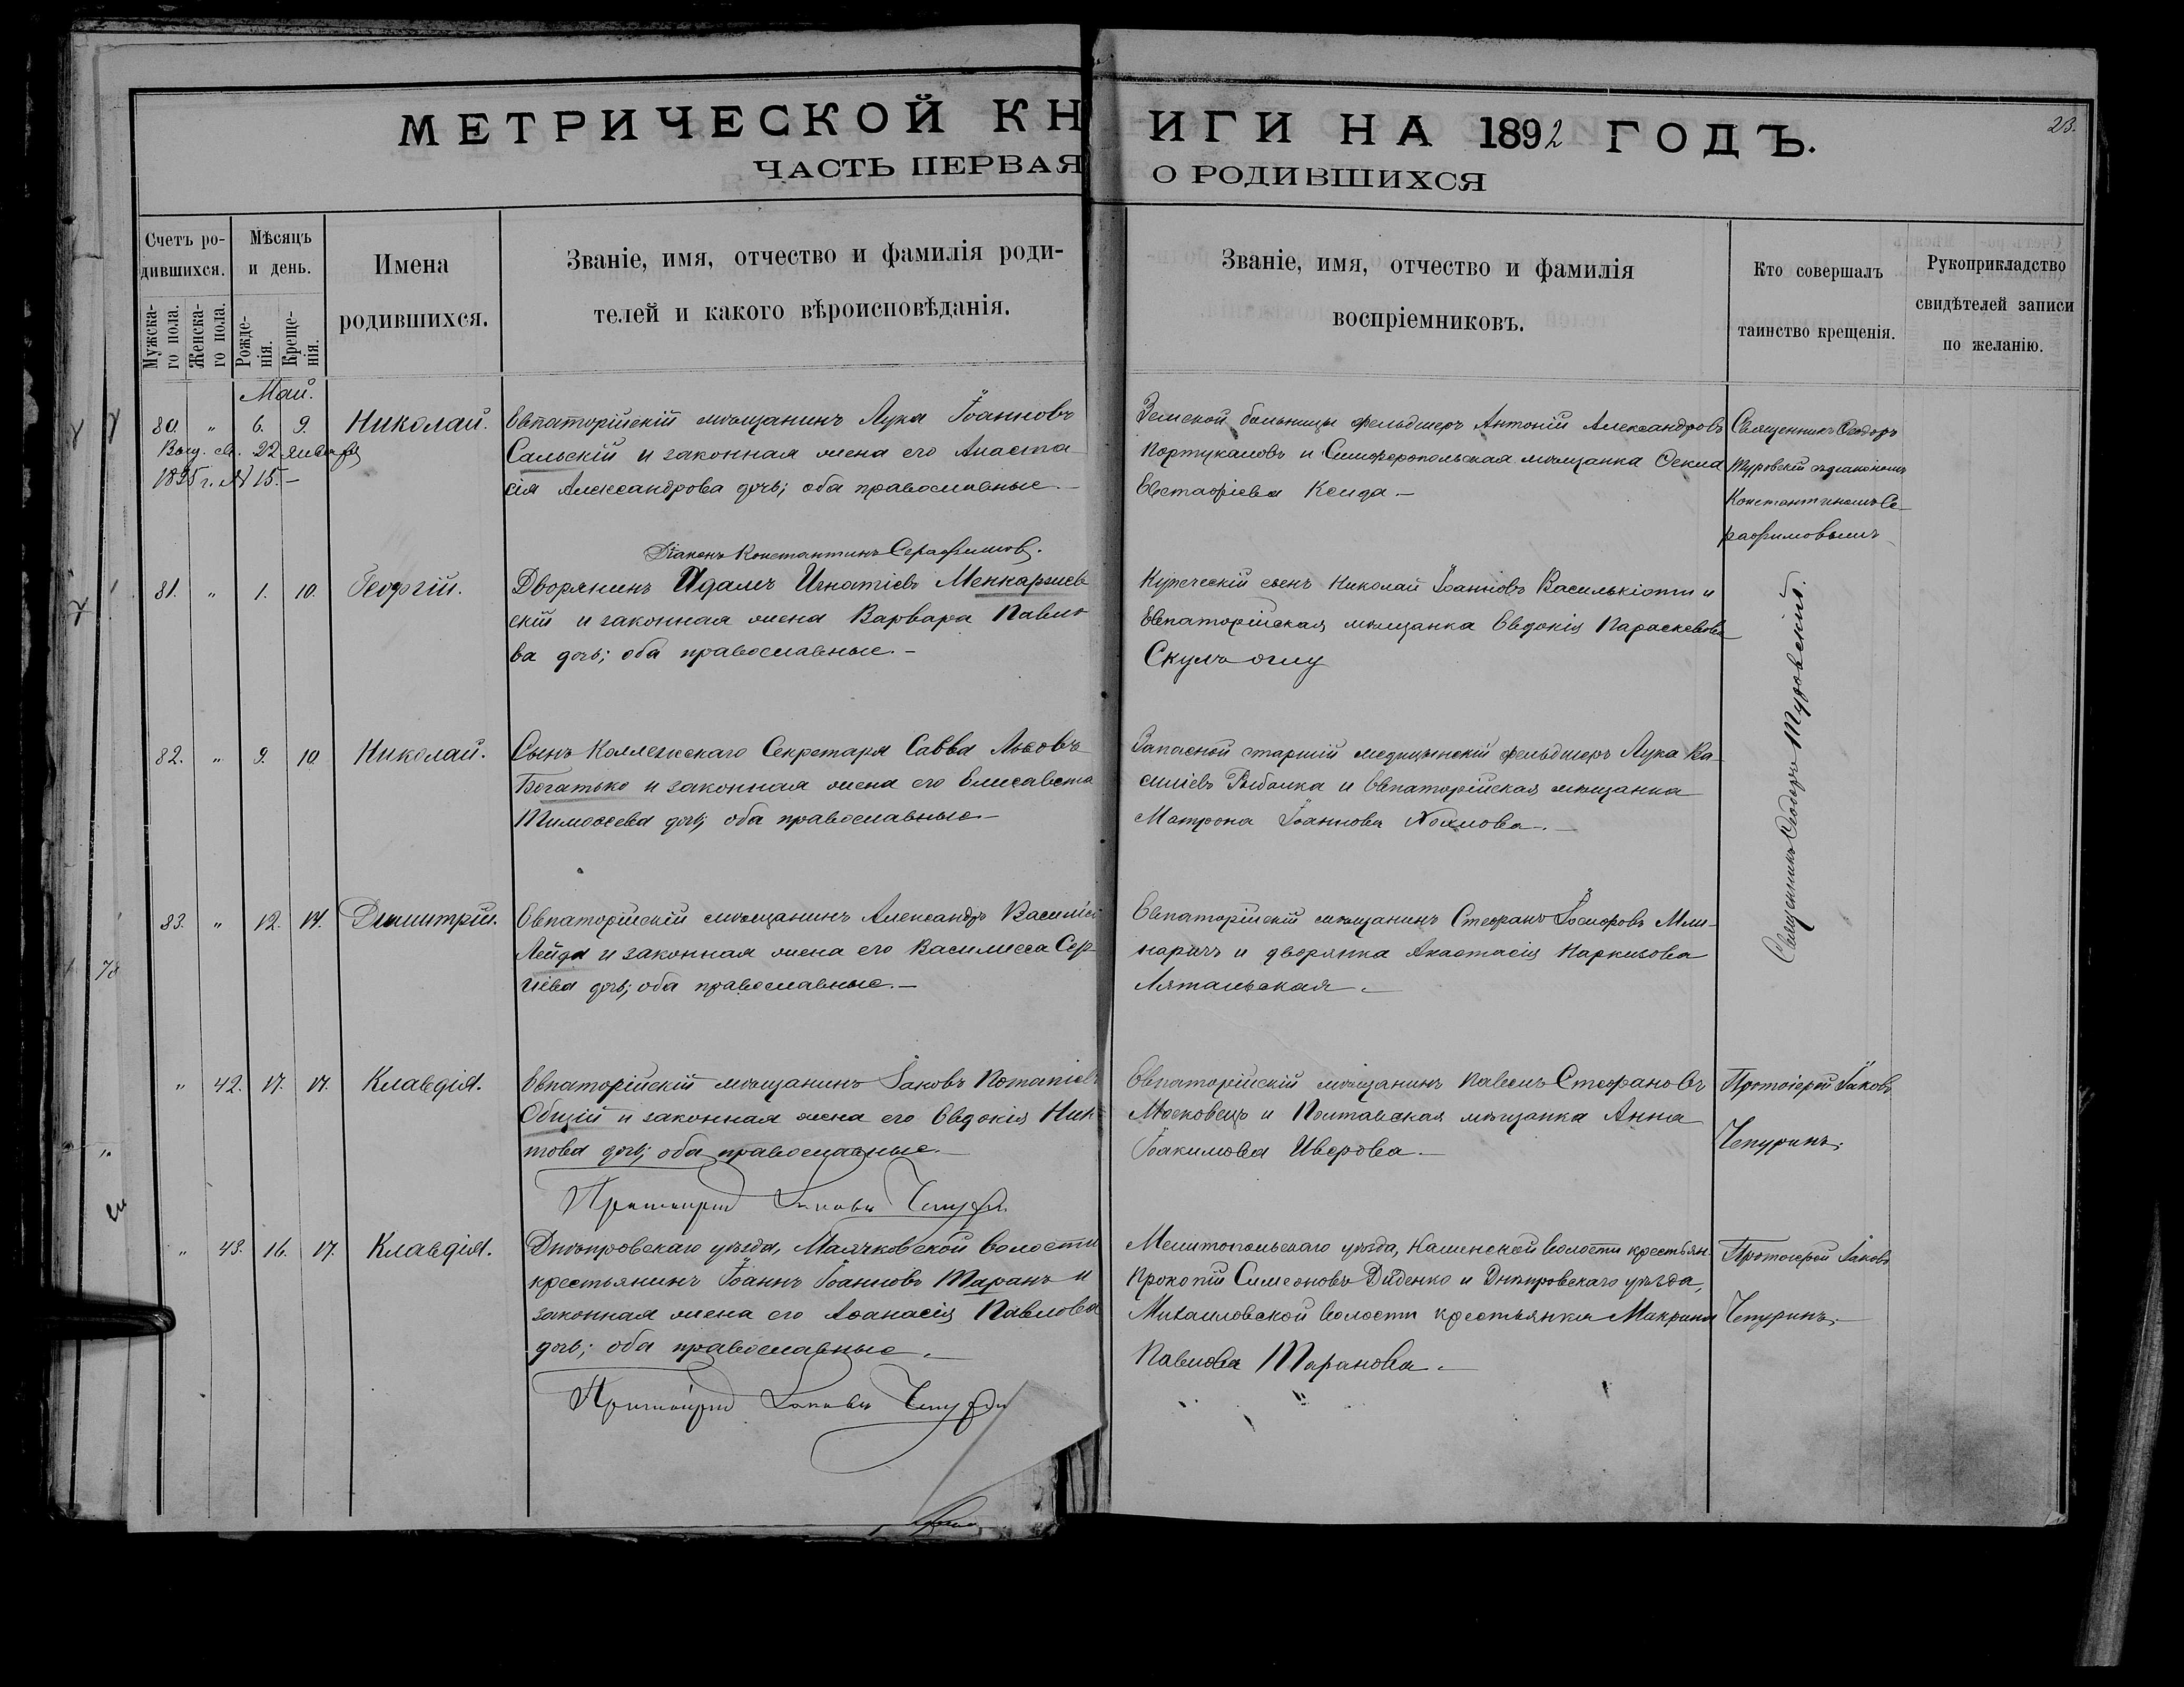 МЕТРИЧЕСКОЙ КНИГИ НА 1892 ГОДЪ.
23.
ЧАСТЬ ПЕРВАЯ О РОДИВШИХСЯ
Счетъ ро-
дившихся.
Мужска-
го пола.
Женска-
го пола.
Мѣсяцъ
и день.
Рожде-
нія.
Креще-
нія.
Имена
родившихся.
Званіе, имя, отчество и фамилія роди-
телей и какого вѣроисповѣданія.
Званіе, имя, отчество и фамилія
воспріемниковъ.
Кто совершалъ
таинство крещенія.
Рукоприкладство
свидѣтелей записи
по желанію.
Май.
80. " 6. 9. Николай.
Выд. св. 22 января
1895 г. № 15.-
Евпаторійскій мѣщанинъ Лука Іоанновъ
Сальскій и законная жена его Анаста-
сія Александрова дочь; оба православные.-
Діаконъ Константинъ Серафимов.
Земской больницы фельдшеръ Антоній Александровъ
Портукаловъ и Симферопольская мѣщанка Ѳекла
Евстафіева Ксида.-
Священникъ Ѳеодоръ
Туровскій съ діакономъ
Константиномъ Се-
рафимовымъ
81. " 1. 10. Георгій.
Дворянинъ Адамъ Игнатіевъ Меккарзиев
скій и законная жена Варвара Павло
ва дочь; оба православные.-
Купеческій сынъ Николай Іоанновъ Василькіоти и
Евпаторійская мѣщанка Евдокія Параскевова
Скулъ-оглу
82. " 9. 10. Николай.
Сынъ Коллежскаго Секретаря Савва Львовъ
Богатько и законная жена его Елисавета
Тимоѳеева дочь; оба православные-
Запасной старшій медицынскій фельдшеръ Лука Ва-
силіевъ Рыбалка и Евпаторійская мѣщанка
Матрона Іоаннова -
Священникъ Ѳеодоръ Туровскій.
83. " 12. 17. Димитрій.
Евпаторійскій мѣщанинъ Александръ Василіев
Лейда и законная жена его Василисса Сер-
гіева дочь; оба православные.-
Евпаторійскій мѣщанинъ Стефанъ Іосифовъ Мли-
наричъ и дворянка Анастасія Наркизова
Лятальская.-
" 42. 17. 17. Клавдія.
Евпаторійскій мѣщанинъ Іаковъ Потапіевъ
Общій и законная жена его Евдокія Ники-
това дочь; оба православные.-
Протоіерей Іаковъ Чепурин
Евпаторійскій мѣщанинъ Павелъ Стефановъ
Московецъ и Полтавская мѣщанка Анна
Іоакимова Иверова.-
Протоіерей Іаковъ
Чепуринъ.
" 43. 16. 17. Клавдія.
Днѣпровскаго уѣзда, Маячковской волости
крестьянинъ Іоаннъ Іоанновъ Таранъ и
законная жена его Аѳанасія Павлова
дочь; оба православные.-
Протоіерей Іаковъ Чепурин
Мелитопольскаго уѣзда, волости крестьян.
Прокопій Симеоновъ Диденко и Днѣпровскаго уѣзда,
Михаиловской волости крестьянка Макрина
Павлова Таранова.-
Протоіерей Іаковъ
Чепуринъ.